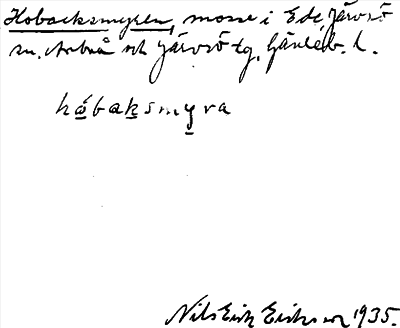 Hobacksmyren, mosse i Ede, Järvsö
sn. Arbrå och Järvsö tg, Gävleb. l.
håbaksmyra
Nils Erik Eriksson 1935.